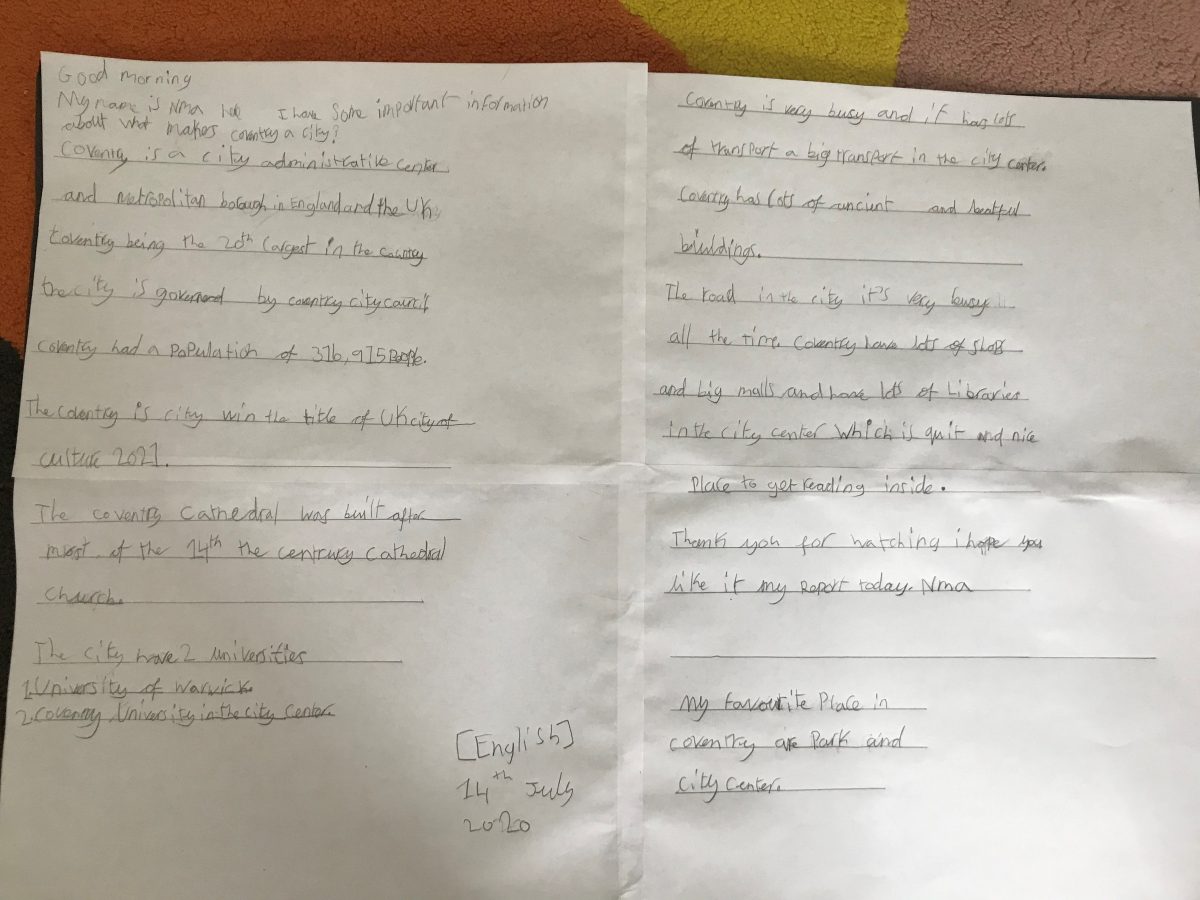 Good morning
My name is Nma I have some important information
about what makes coventry a city?
Coventry is a city administrative center
and metropolitan borough in England and the UK
Coventry being the 20th largest in the country
the city is governed by coventry city council
coventry had a population of 316,915 people.
The coventry is city win the title of UK city of
culture 2021.
The coventry cathedral was built after
most of the 14th the centrury cathedral
church.
The city have 2 universities
1. University of Warwick
2. Coventry University in the city center
[English]
14th July
2020
Coventry is very busy and it has lots
of transport a big transport in the city center.
Coventry has lots of ancient and beatful
buildings.
The road in the city it's very busy
all the time. Coventry have lots of shops
and big malls and have lots of Libraries
in the city center which is quit and nice
place to get reading inside.
Thank you for watching i hope you
like it my report today. Nma
My favourite place in
coventry are park and
city center.